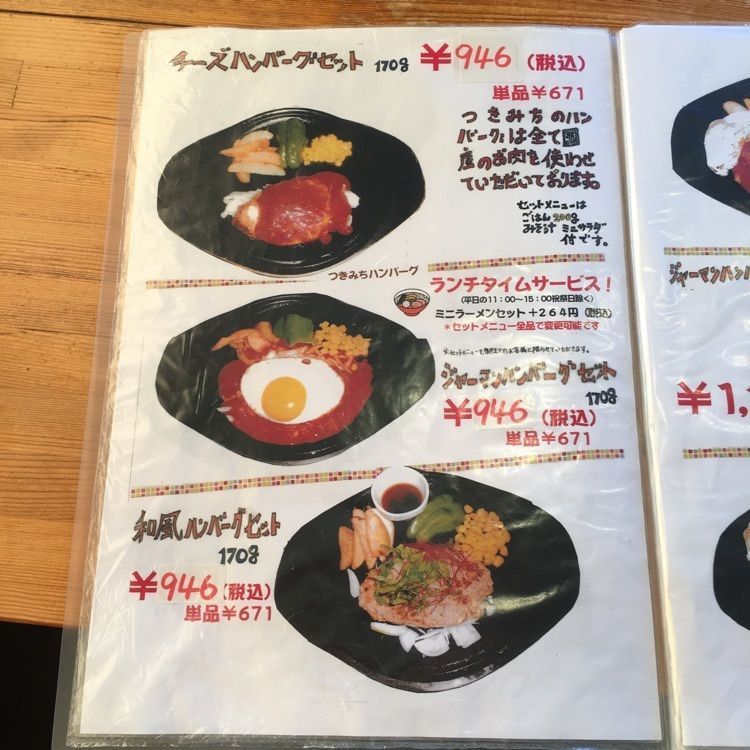 チーズハンバーグセット 170g ¥946 (税込)
単品¥671
つきみちのハン
バーグは全て国
産のお肉を使わせ
ていただいております。
セットメニューは
ごはん200g
みそ汁 ミニサラダ
付です。
つきみちハンバーグ
ランチタイムサービス!
(平日の11:00〜15:00祝祭日除く)
ミニラーメンセット+264円(税込)
*セットメニュー全品で変更可能です
ジャーマンハンバーグセット
170g
¥946 (税込)
単品¥671
和風ハンバーグセット
170g
¥946(税込)
単品¥671
ジャーマンハン
¥1,